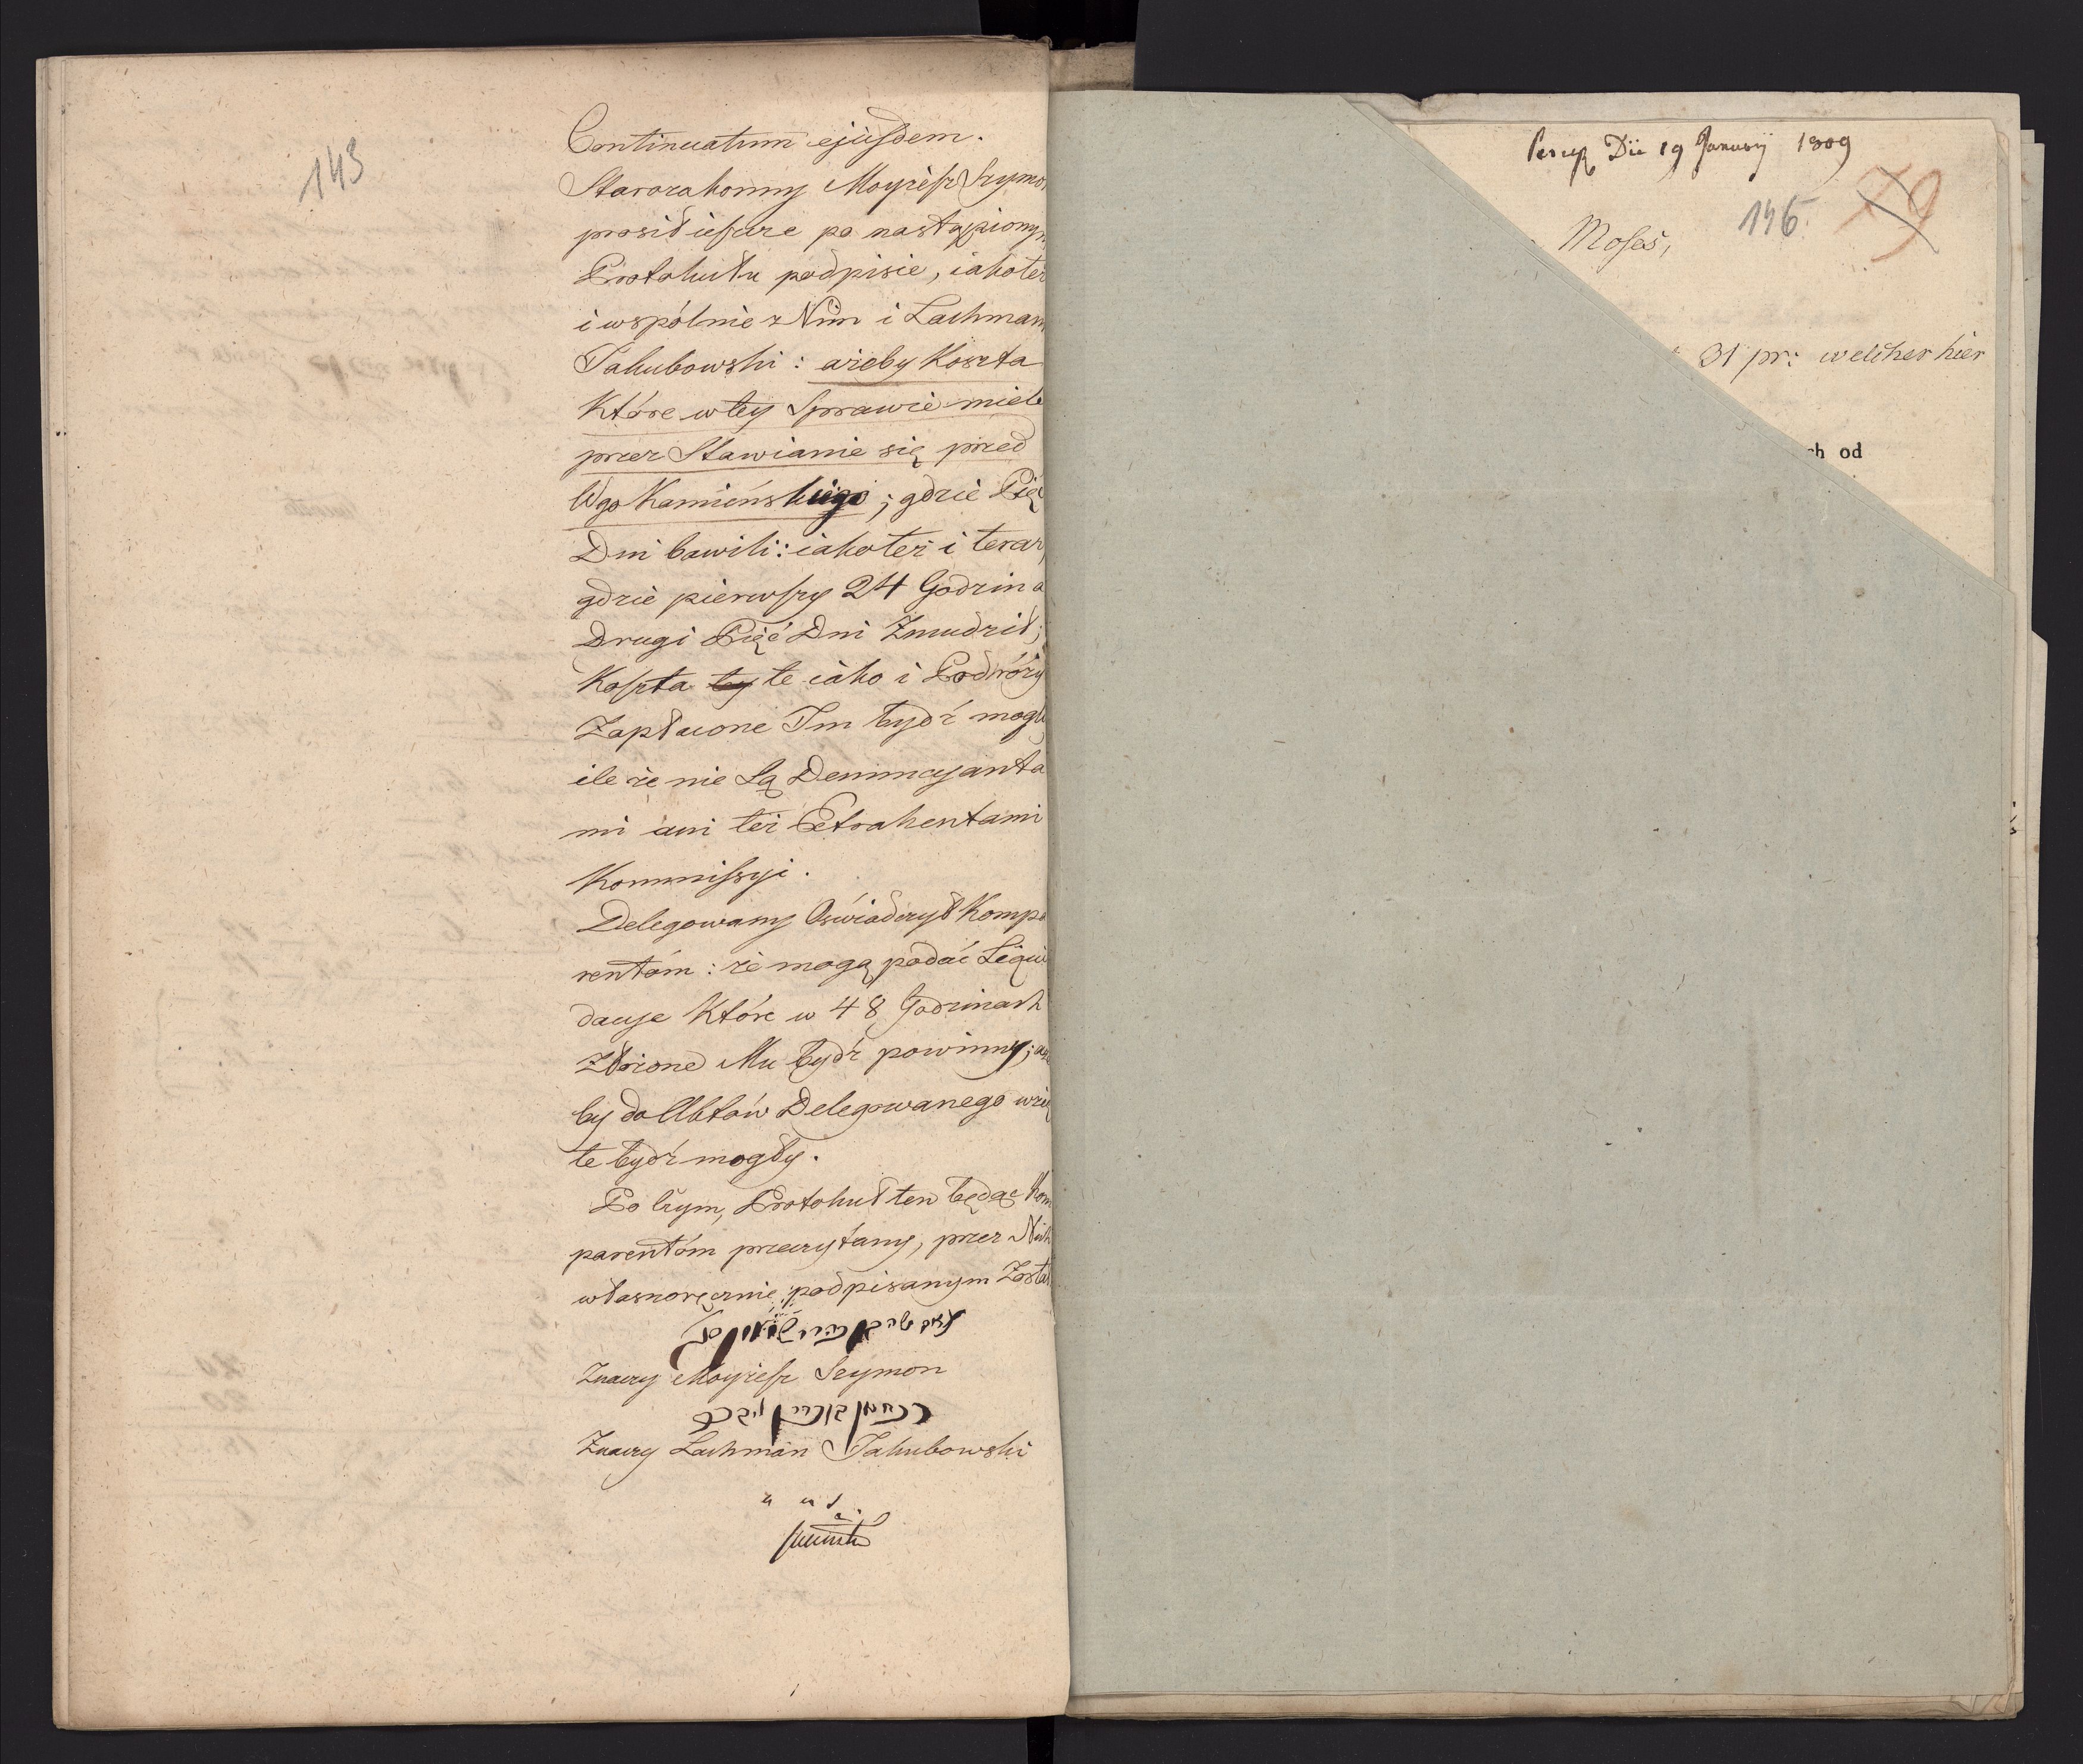 143
Continuatum ejusdem.
Starozakonny Moyżesz Szymo
prosił ieszcze po nastąpionym
Protokułu podpisie, iakoteż
i wspólnie z Nim i Lachman
Jakubowski: ażeby Koszta
Które w tey Sprawie mieli
przez Stawianie się przed
Wgo Kamieńskiego; gdzie Pięć
Dni bawili: iakoteż i teraz,
gdzie pierwszy 24 Godzin a
Drugi Pięć Dni Zmudził;
Koszta ty te iako i Podróży
Zapłacone Im bydź mogły
ile że nie Są Denuncyanta
mi ani też Petrahentami
Kommissyi.
Delegowany Oświadczył Kompa
rentóm: że mogą podać Liqui
dacye Które w 48 Godzinach
Złożone Mu bydź powinny; aże
by do Aktów Delegowanego wzię
te bydź mogły.
Po czym, Protokuł ten będąc Kom
parentóm przeczytany, przez Nich
własnoręcznie podpisanym Został
Znaczy Moyżesz Szymon
Znaczy Lachman Jakubowski
u u s
Dii 19 January 1809
146
79
Moses,
31 pr: welcher hier
ch od